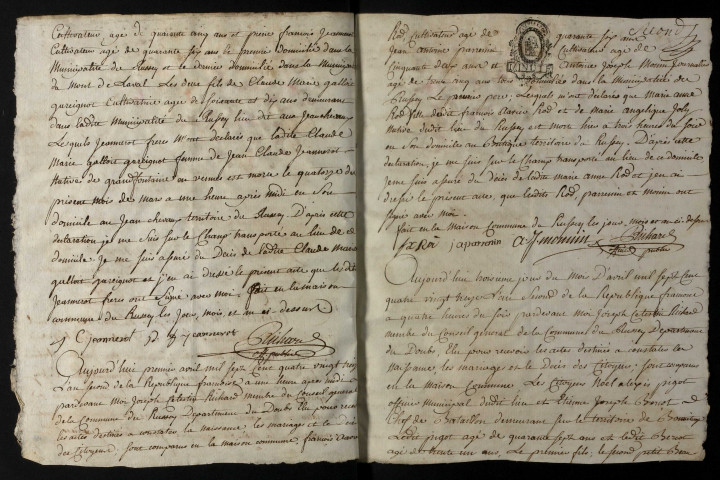 Cultivateur, agé de quarante cinq ans et pierre françois Jeannerot
Cultivateur agé de quarante six ans le premier Domicilié dans la
Municipalité du Russey et le dernier domicilié dans la Municipalité
du Mont de Laval Les deux fils de Claude Marie galliot
Cultivatrice agée de soixante et dix ans demeurant
dans ladite Municipalité du Russey lieu dit aux
Lesquels Jeannerot freres M'ont déclarés que ladite Claude
Marie galliot femme de Jean Claude Jeannerot
Native de grandfontaine en vennes est morte le quatorze du
présent mois de mars a une heure après midi en Son
domicile au territoire du Russey. D'après cette
déclaration je me Suis Sur le Champ transporté au lieu de ce
domicile Je me Suis assuré du Décès de ladite Claude Marie
galliot et j'en ai dressé le présent acte que les dits
Jeannerot freres ont Signé avec moi. fait en la maison
commune du Russey les Jour, mois et an ci-dessus
Jeannerot Jeannerot
Richard
off. public
Aujourd'hui premier avril mil Sept Cent quatre vingt treize
L'an second de la République françoise a une heure après midi
pardevant Moi Joseph Célestin Richard Membre du Conseil general
de la Commune du Russey Département du Doubs Elu pour recevoir
les actes destinés a constater la naissance les mariages et le décès
des Citoyens Sont comparus en la maison commune françois
second
Rod cultivateur agé de quarante six ans
Jean Antoine parrenin Cultivateur agé de
Cinquante deux ans et Antoine Joseph Monnin Journalier
agé de trente cinq ans tous domiciliés dans la Municipalité du
Russey Le premier pere. Lesquels m'ont déclarés que Marie anne
Rod fille dudit françois Rod et de marie angelique Joly
Native dudit lieu du Russey est morte hier a trois heures du Soir
en Son domicile au territoire du Russey. D'après cette
déclaration, je me suis Sur le Champ transporté au lieu de ce domicile
je me suis assuré du décès de ladite marie anne Rod et j'en ai
dressé le présent acte que lesdits Rod, parrenin et Monnin ont
signé avec moi.
fait en la Maison Commune du Russey les jour, mois et an ci-dessus
parrenin A J monnin Richard
off. public
Aujourd'hui troisieme jour du Mois D'avril mil Sept Cent
quatre vingt treize l'an Second de la République françoise
a quatre heures du Soir pardevant Moi Joseph Célestin Richard
membre du Conseil general de la Commune du Russey Département
du Doubs Elu pour recevoir les actes destinés a constater la
naissance les mariages et le Décès des Citoyens, Sont comparus
en la Maison Commune Les Citoyens Noel alexis pigot
officier Municipal dudit lieu et Etienne Joseph
Chef de Bataillon demeurant Sur le territoire de
Ledit pigot agé de quarante Sept ans et ledit
agé de trente un ans, Le premier fils, le Second petit